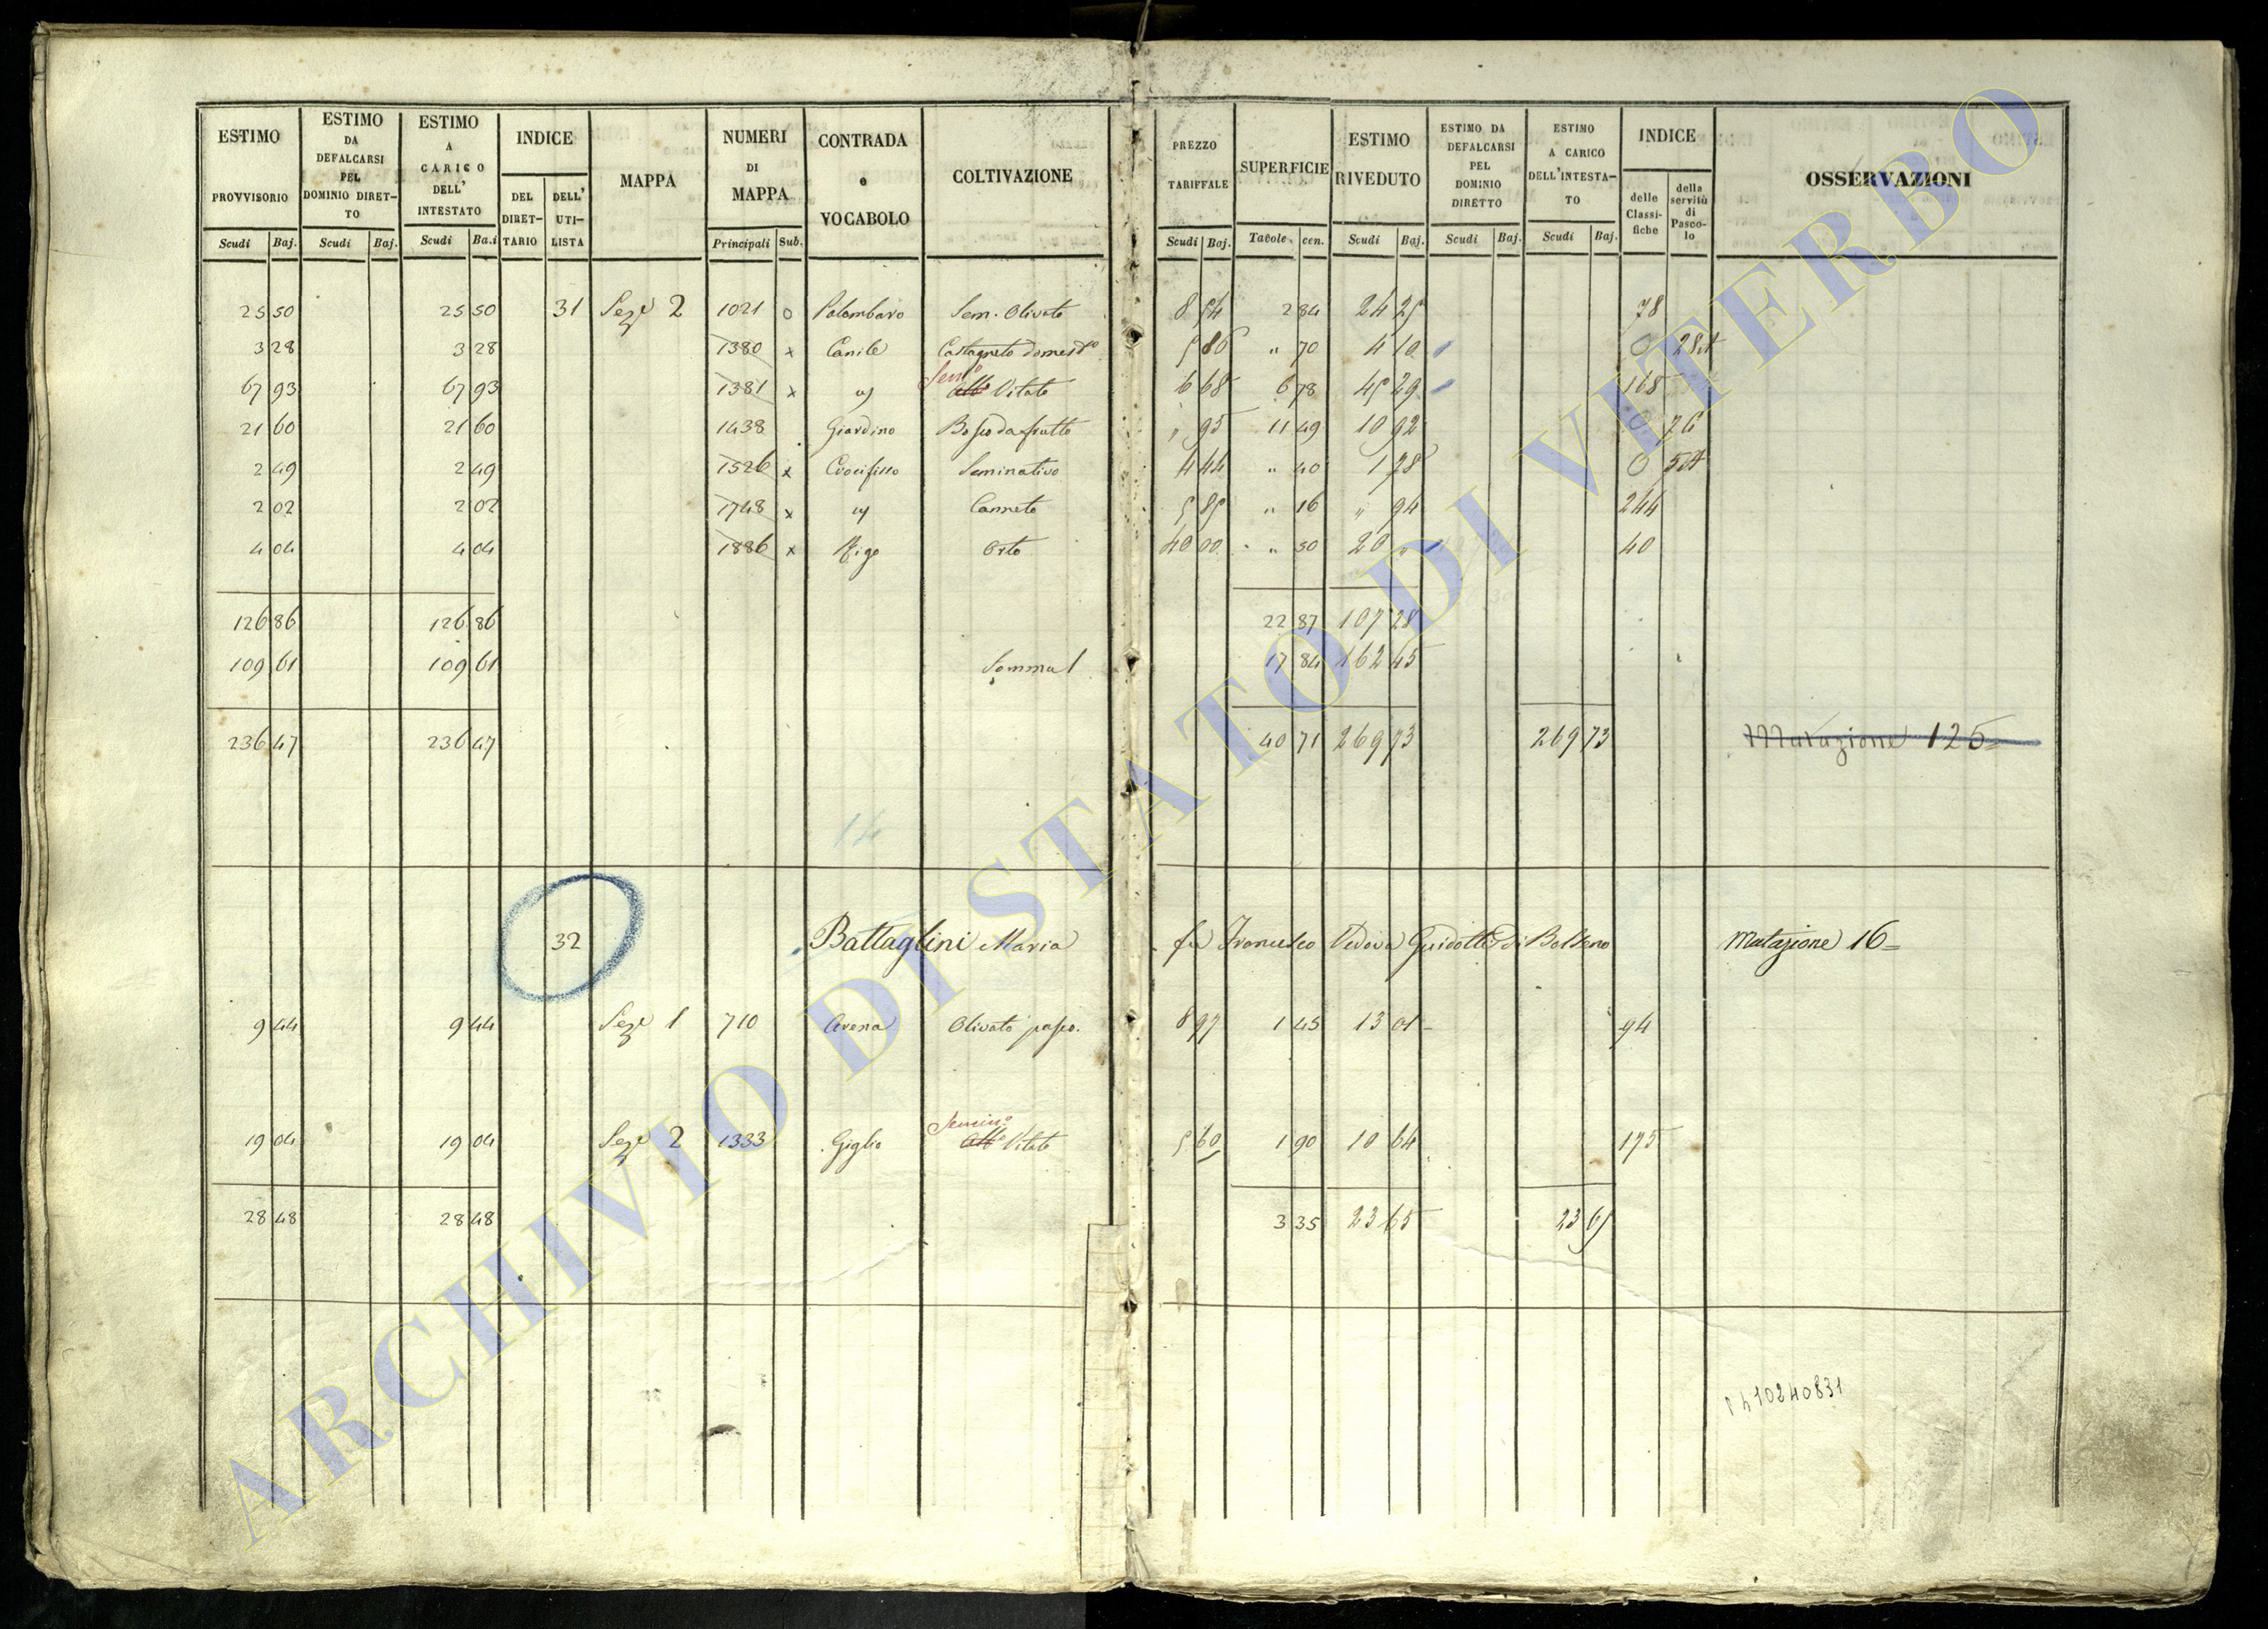 ESTIMO PROVVISORIO Scudi Baj.
ESTIMO DA DEFALCARSI PEL DOMINIO DIRETTO Scudi Baj.
ESTIMO A CARICO DELL' INTESTATO Scudi Ba.i
INDICE DEL DIRETTARIO DELL' UTILISTA
MAPPA
NUMERI DI MAPPA Principali Sub.
CONTRADA e VOCABOLO
COLTIVAZIONE
PREZZO TARIFFALE Scudi Baj.
SUPERFICIE Tavole cen.
ESTIMO RIVEDUTO Scudi Baj.
ESTIMO DA DEFALCARSI PEL DOMINIO DIRETTO Scudi Baj.
ESTIMO A CARICO DELL'INTESTATO Scudi Baj.
INDICE delle Classifiche della servitù di Pascolo
OSSERVAZIONI
25 50 25 50 31 Seze 2 1021 o Palombaro Sem. Olivato 8 54 2 84 24 25 78
3 28 3 28 1380 x Canile Castagneto domest.o 5 86 " 70 4 10 0 28
67 93 67 93 1381 x Sem.o Vitato 6 68 6 78 45 29 168
21 60 21 60 1438 Giardino Bosco da frutto " 95 11 49 10 92 0 76
2 49 2 49 1526 x Crocifisso Seminativo 4 44 " 40 1 78 0
2 02 2 02 1748 x Canneto 5 85 " 16 " 94 244
4 04 4 04 1886 x Rigo Orto 40 00 " 50 20 " 40
126 86 126 86 22 87 107 28
109 61 109 61 Somma 1 17 84 162 45
236 47 236 47 40 71 269 73 269 73 Mutazione 125
14
32 Battaglini Maria fu Francesco Vedova Guidotti di Bolseno Mutazione 16
9 44 9 44 Seze 1 710 Arena Olivato pasco. 8 97 1 45 13 01 94
19 04 19 04 Seze 2 1333 Giglio Semin.o Vitato 5 60 1 90 10 64 175
28 48 28 48 3 35 23 65 23 65
ARCHIVIO DI STATO DI VITERBO